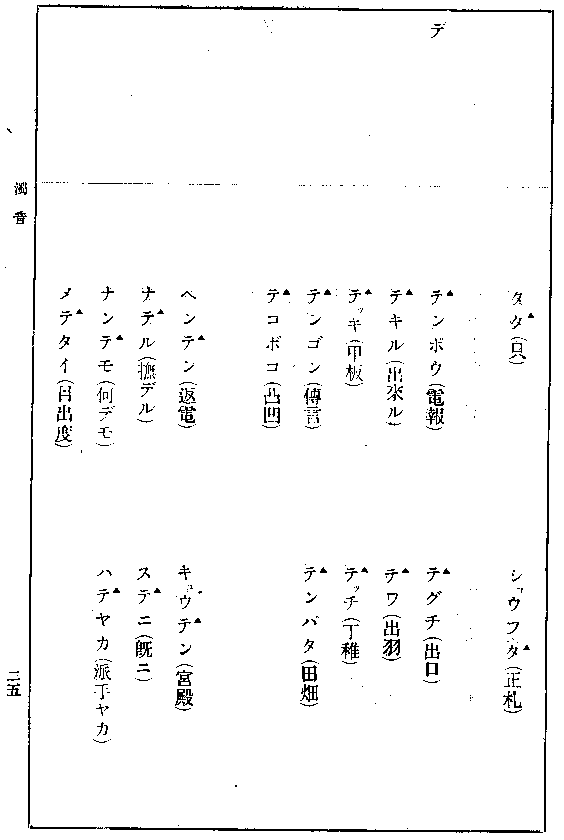 デ
タタ▲(只)
ショウフタ▲(正札)
テ▲ンボウ(電報)
テ▲グチ(出口)
テ▲キル(出來ル)
テ▲ワ(出羽)
テ▲ッキ(甲板)
テ▲ッチ(丁稚)
テ▲ンゴン(傳言)
テ▲ンバタ(田畑)
テ▲コボコ(凸凹)
ヘンテ▲ン(返電)
キュウテ▲ン(宮殿)
ナテ▲ル(撫デル)
ステ▲ニ(既ニ)
ナンテ▲モ(何デモ)
ハテ▲ヤカ(派手ヤカ)
メテ▲タイ(目出度)
濁音
二五